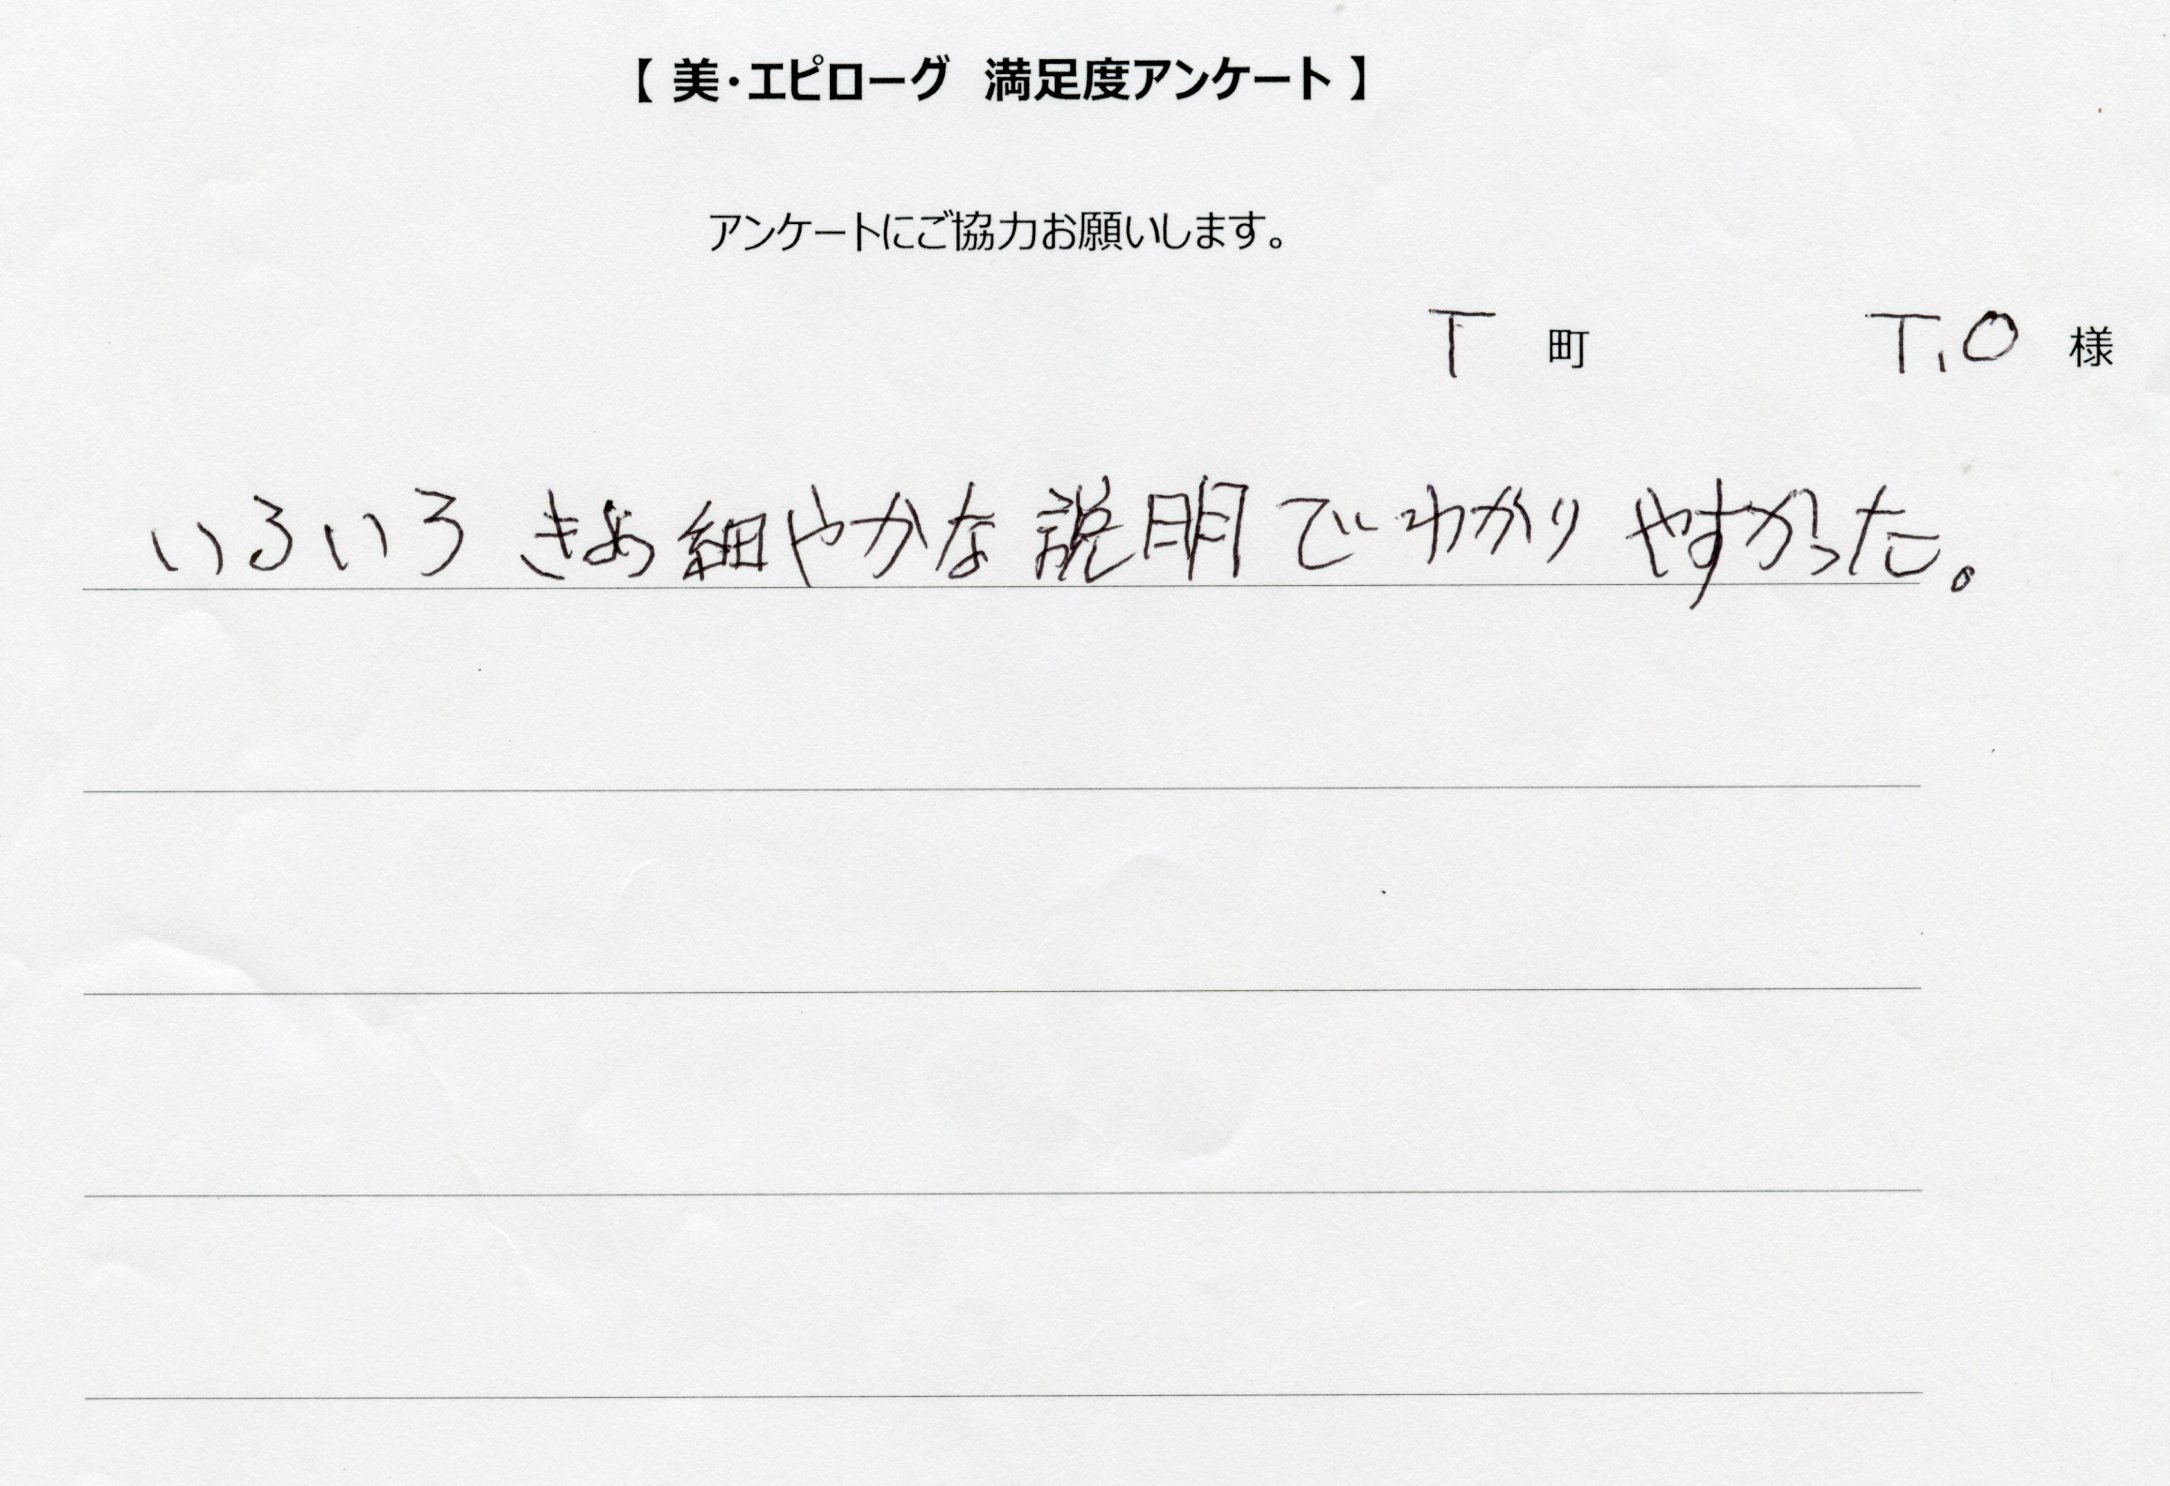 【 美・エピローグ 満足度アンケート 】
アンケートにご協力お願いします。
T 町 T.O 様
いろいろ きめ細やかな説明でわかりやすかった。